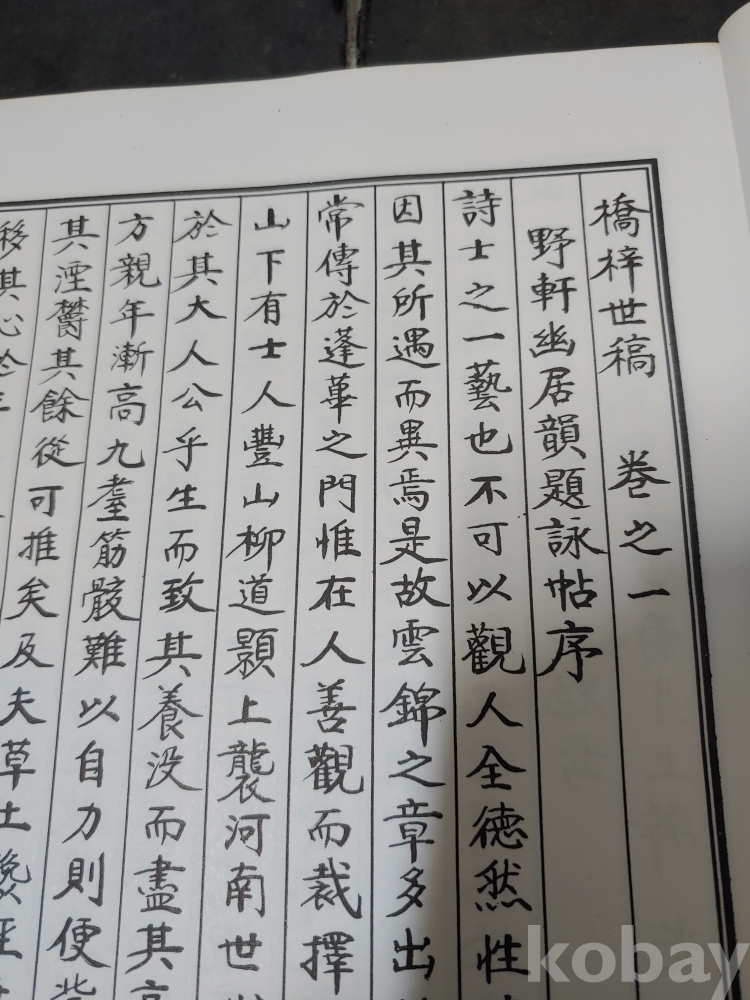 橋梓世稿 卷之一
野軒幽居韻題詠帖序
詩士之一藝也不可以觀人全德然性
因其所遇而異焉是故雲錦之章多出
常傳於蓬蓽之門惟在人善觀而裁擇
山下有士人豐山柳道顥上襲河南世
於其大人公乎生而致其養没而盡其
方親年漸高九耋筋骸難以自力則便
其湮欝其餘從可推矣及夫草土
移其心
kobay